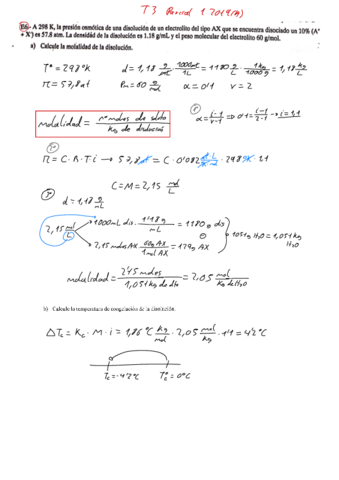 T3 Parcial 1 2019(M)
E6- A 298 K, la presión osmótica de una disolución de un electrolito del tipo AX que se encuentra disociado un 10% (A⁺
+ X⁻) es 57.8 atm. La densidad de la disolución es 1.18 g/mL, y el peso molecular del electrolito 60 g/mol.
a) Calcule la molalidad de la disolución.
T° = 298°K d = 1,18 g/mL · 1000mL/1L = 1180 g/L · 1kg/1000g = 1,18 kg/L
π = 57,8at Pm = 60 g/mol α = 0'1 ν = 2
molalidad = n° moles de soluto / kg de disolvente
1° α = i-1/ν-1 ⇒ 0'1 = i-1/2-1 → i = 1,1
2° π = C·R·T·i → 57,8at = C · 0'082 at·L/°K·mol · 298°K · 1.1
C = M = 2,15 mol/L
3° d = 1,18 g/mL
2,15 mol/L
1000mL dis · 1'18g/mL = 1180g dis
2,15 moles AX · 60g AX/1mol AX = 129g AX
1051g H₂O = 1,051kg H₂O
molalidad = 2'15 moles / 1,051kg de dis = 2,05 mol/kg de H₂O
b) Calcule la temperatura de congelación de la disolución.
ΔTc = Kc · M · i = 1,86°C kg/mol · 2,05 mol/kg · 1'1 = 4'2°C
Tc = -4'2°C Tc° = 0°C